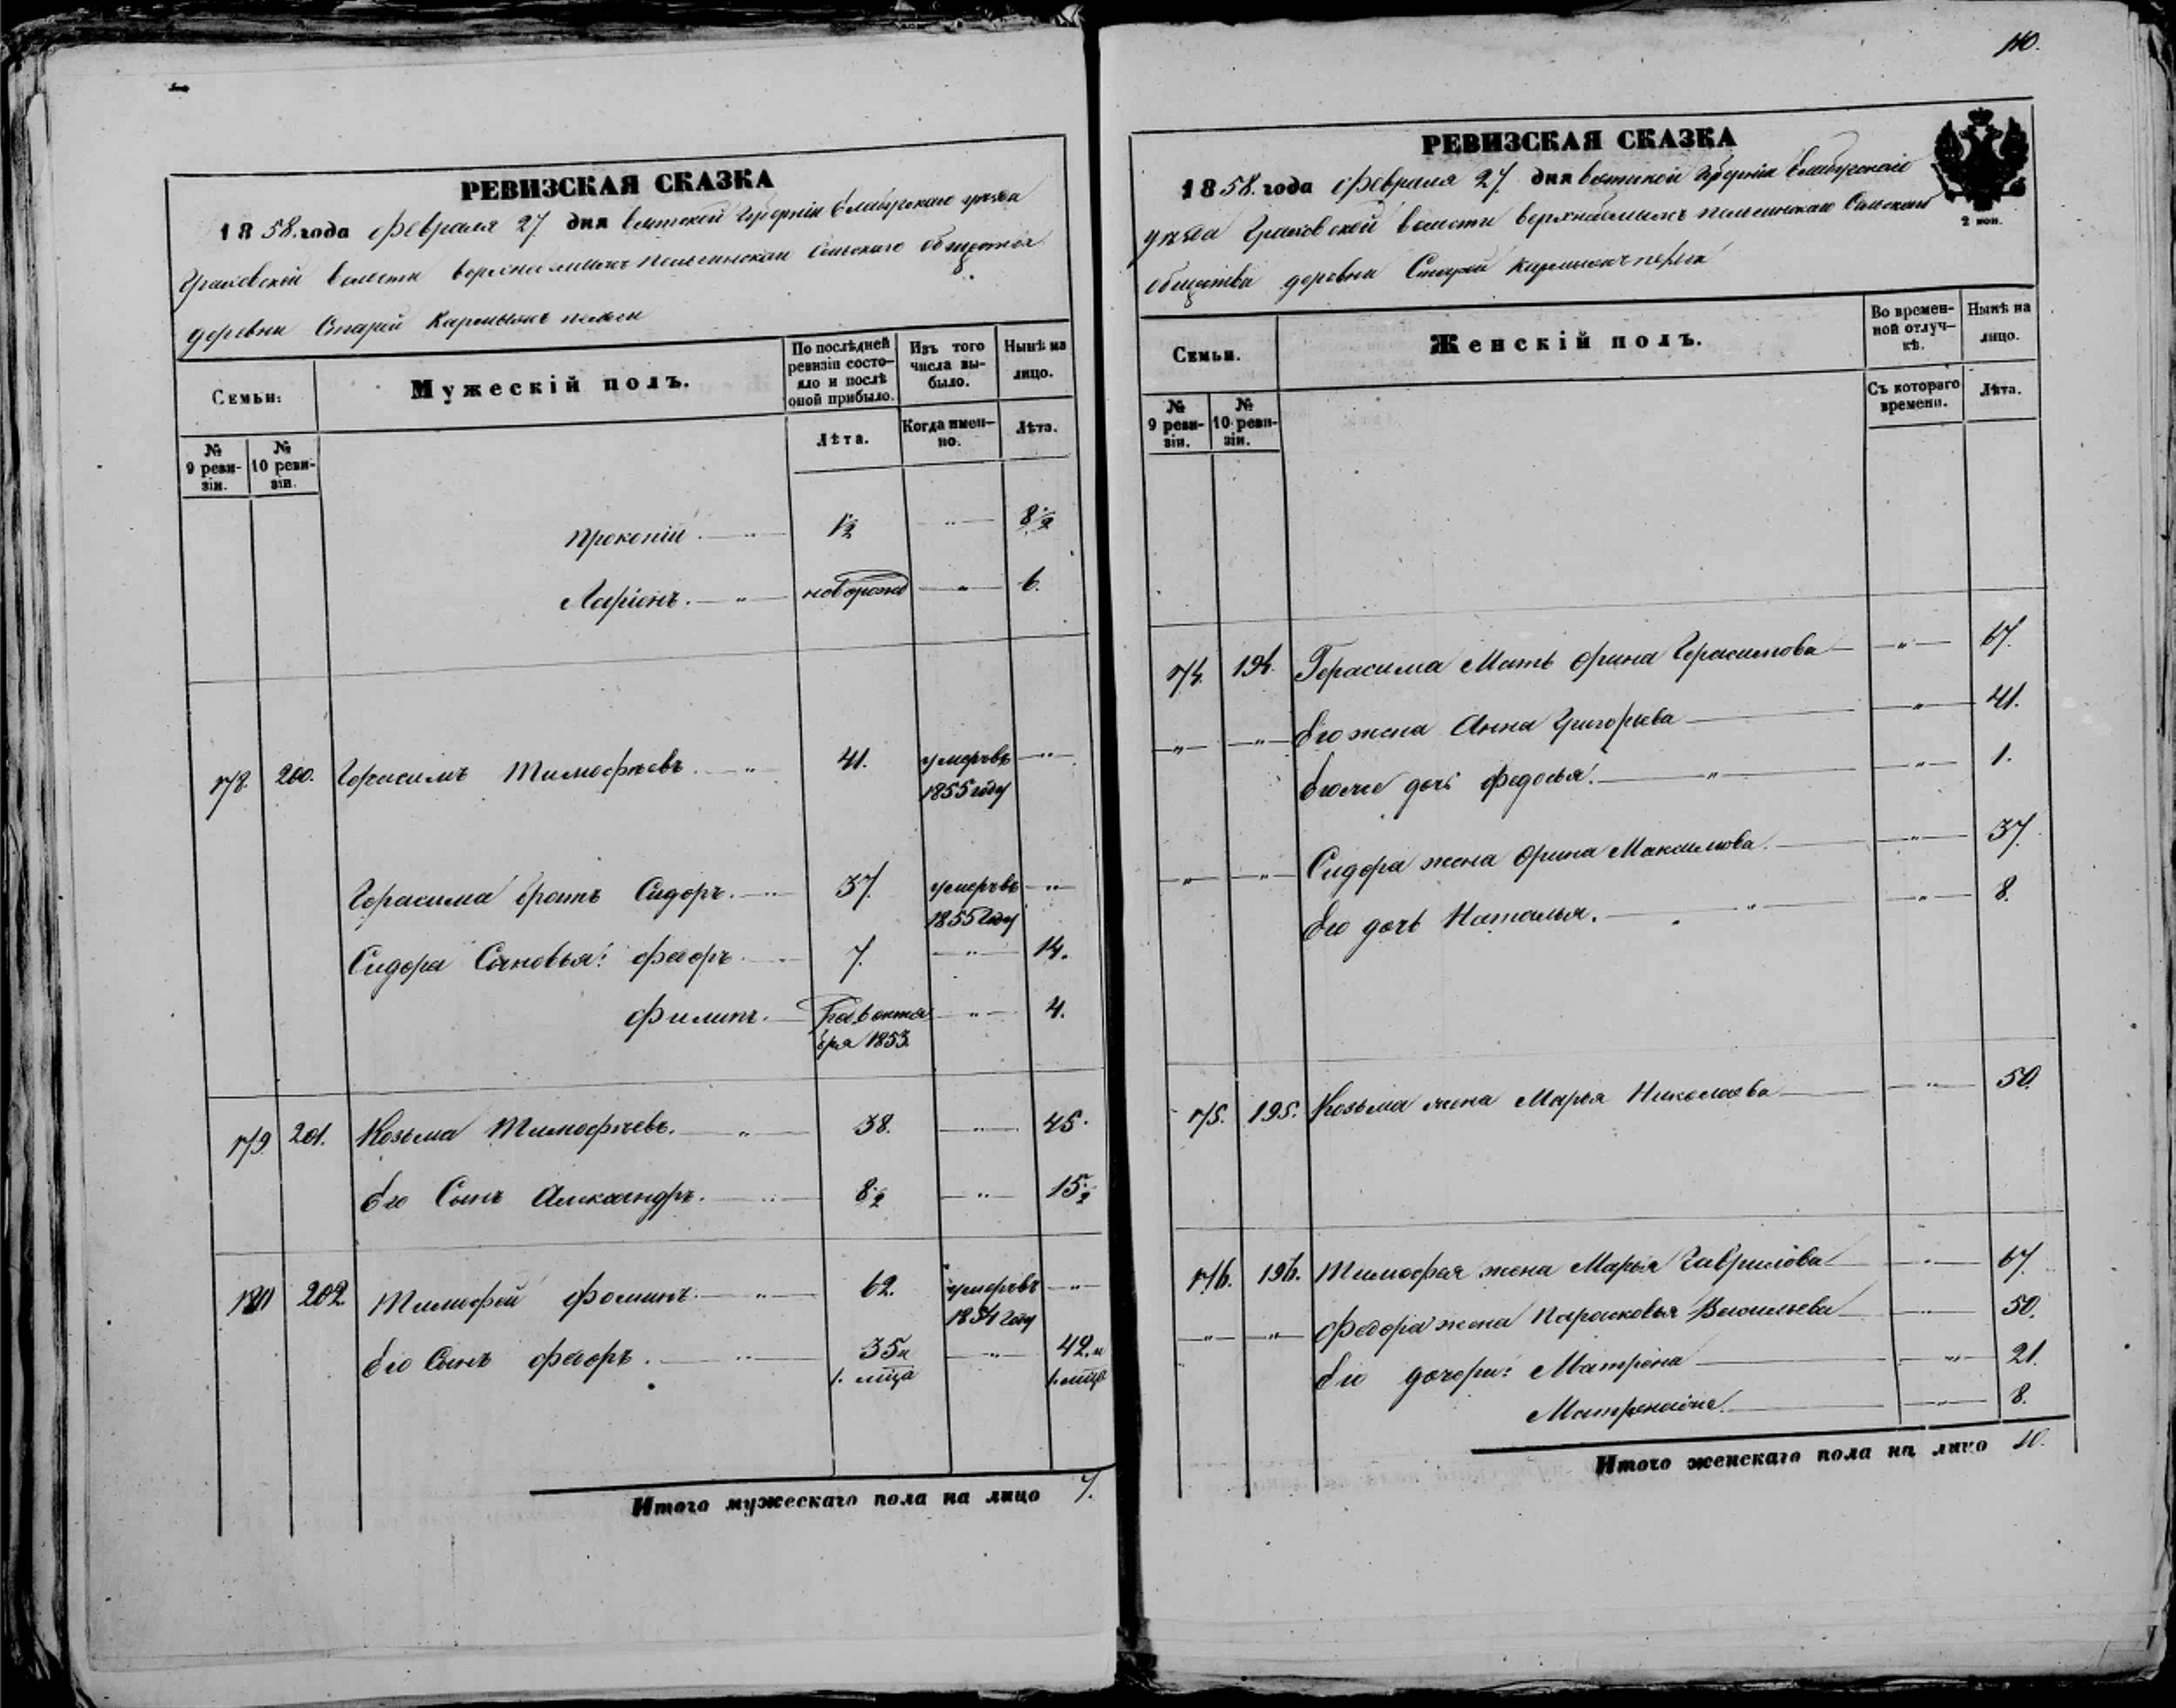 РЕВИЗСКАЯ СКАЗКА
1858. года февраля 27. дня вятской Губерніи Елабугскаго уѣзда
Граховской волости
сельскаго общества
деревни Старой
Семьи:
Мужескій полъ.
По послѣдней ревизіи состояло и послѣ оной прибыло.
Изъ того числа выбыло.
Нынѣ на лицо.
№ 9 ревизіи.
№ 10 ревизіи.
Лѣта.
Когда именно.
Лѣта.
Прокопій. 1½ " 8½
Ларіонъ. " новорожд " 6.
178. 200. Герасимъ Тимофѣевъ. " 41. умеръ въ "
1855 году
Герасима братъ Сидоръ. " 37. умеръ въ "
1855 году
Сидора Сыновья: Федоръ. " 7. " 14.
Филипъ. " 4.
октября 1853.
179. 201. Козьма Тимофѣевъ. " 38. " 45.
Его Сынъ Александръ. " 8½ " 15½
180 202. Тимофей Фоминъ. " 62. умеръ въ "
1854 году
Его Сынъ Федоръ. " 35 и " 42. и
1. мца 1. мца
Итого мужескаго пола на лицо 7.
110.
РЕВИЗСКАЯ СКАЗКА
1858. года февраля 27. дня вятской Губерніи Елабугскаго
2 коп.
уѣзда Граховской волости Сельскаго
общества деревни Старой
Семьи.
Женскій полъ.
Во временной отлучкѣ.
Нынѣ на лицо.
№ 9 ревизіи.
№ 10 ревизіи.
Съ котораго времени.
Лѣта.
174. 194. Герасима Мать Орина Герасимова " 67.
" " Его жена Анна Григорьева " 41.
Его же дочь Федосья. " " 1.
" " Сидора жена Орина Максимова. " 37.
Его дочь Наталья. " " 8.
175. 195. Козьма жена Марья Николаева " 50.
176. 196. Тимофея жена Марья Гаврилова " 67.
" " Федора жена Парасковья Васильева " 50.
Его дочери: Матрена " 21.
Матрена же. " 8.
Итого женскаго пола на лицо 10.